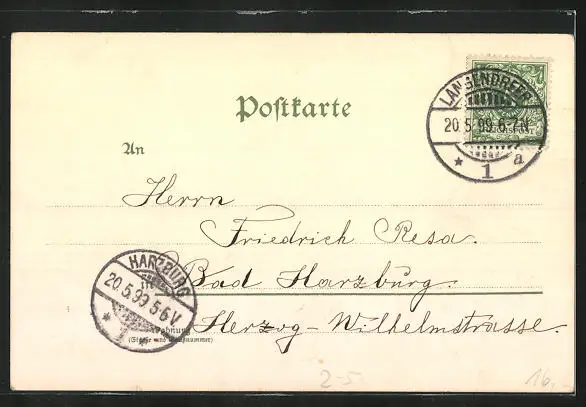 Postkarte
LANGENDREER
20.5.99.6-7N.
* 1 a
REICHSPOST
An
Herrn
Friedrich Resa.
HARZBURG
20.5.99 5-6V
* 1 *
Bad Harzburg.
Wohnung
(Straße und Hausnummer)
Herzog-Wilhelmstrasse.
2-5
16,-